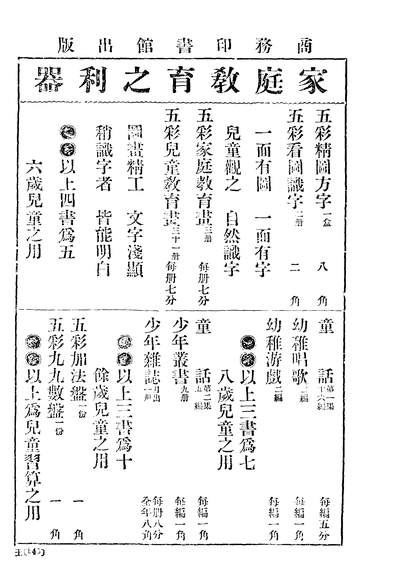 商務印書館出版
家庭教育之利器
五彩精圖方字一盒 八角
五彩看圖識字二册 二角
一面有圖 一面有字
兒童觀之 自然識字
五彩家庭教育畫三册 每册七分
五彩兒童教育畫三十一册 每册七分
圖畫精工 文字淺顯
稍識字者 皆能明白
以上四書爲五
六歲兒童之用
童話第一集十六編 每編五分
幼稚唱歌二編 每編一角
幼稚游戲二編 每編一角
以上三書爲七
八歲兒童之用
童話第二集五編 每編一角
少年叢書九册 每編一角
少年雜誌月出一册 每册八分全年八角
以上三書爲十
餘歲兒童之用
五彩加法盤一份 一角
五彩九九數盤一份 一角
以上爲兒童習算之用